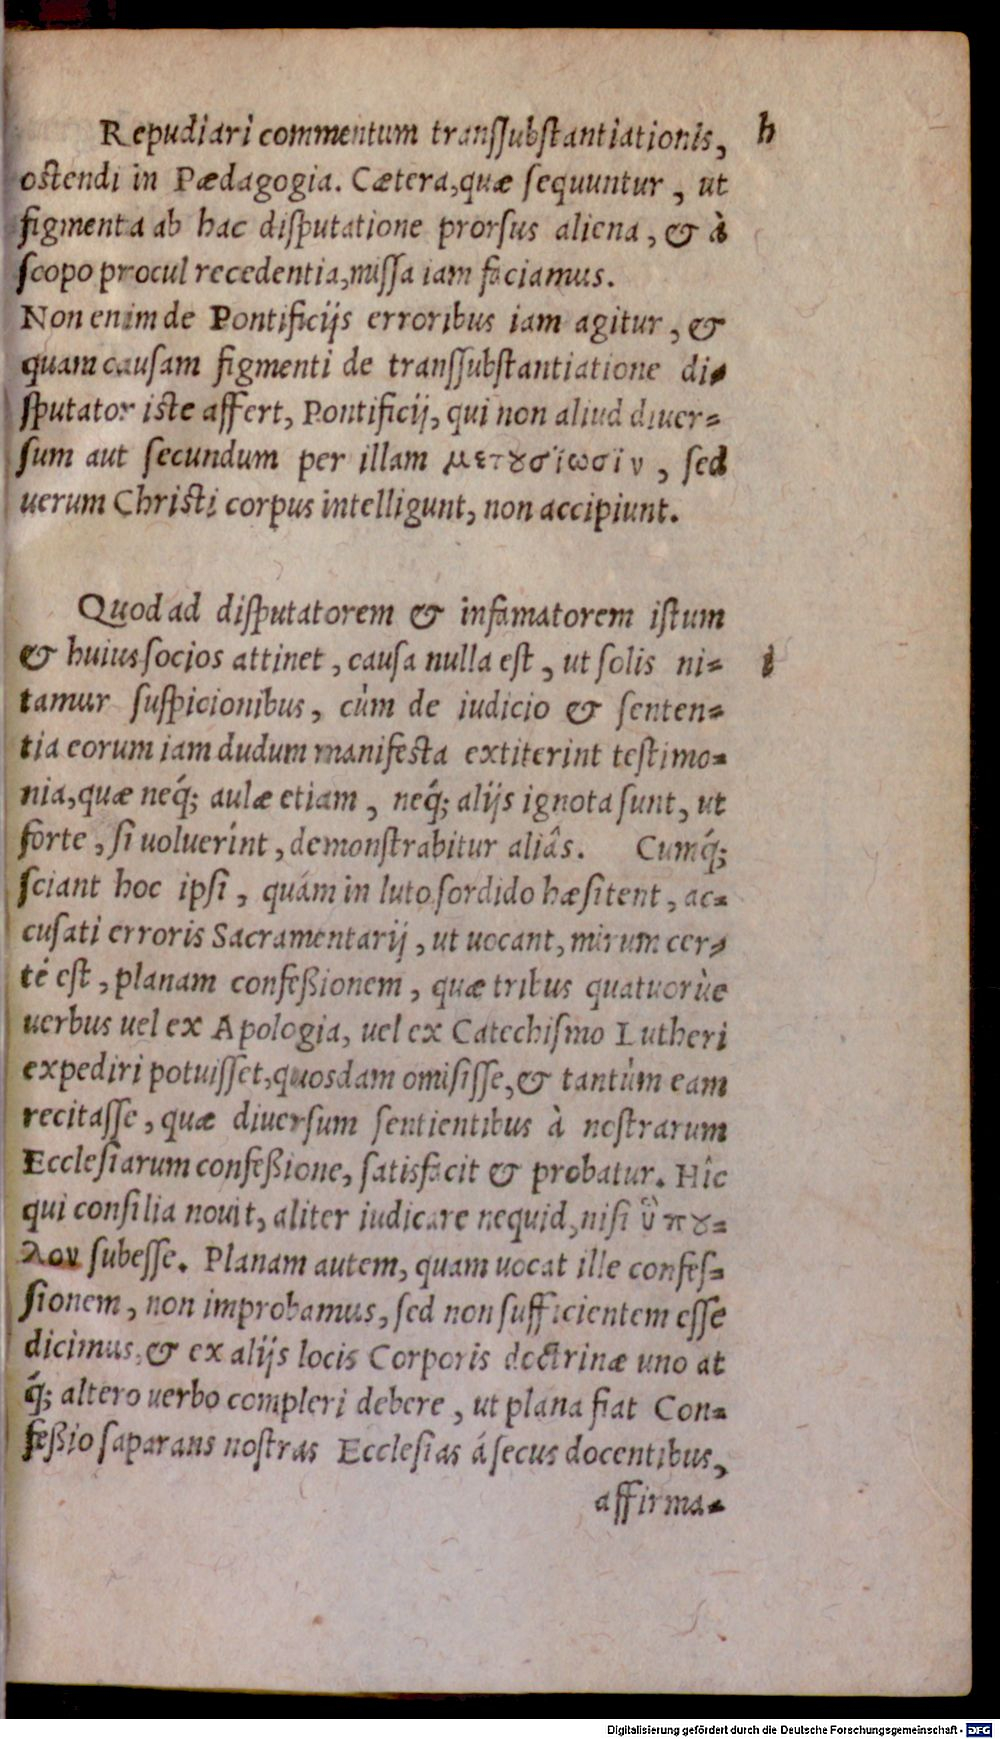 Repudiari commentum transſubſtantiationis, h
oſtendi in Pædagogia. Cætera, quæ ſequuntur, ut
figmenta ab hac diſputatione prorſus aliena, & à
ſcopo procul recedentia, miſſa iam faciamus.
Non enim de Pontificijs erroribus iam agitur, &
quam cauſam figmenti de transſubſtantiatione di-
ſputator iſte affert, Pontificij, qui non aliud diuer-
ſum aut ſecundum per illam μετȣσίωσιν, ſed
uerum Chriſti corpus intelligunt, non accipiunt.
Quod ad diſputatorem & infamatorem iſtum
& huius ſocios attinet, cauſa nulla eſt, ut ſolis ni- i
tamur ſuſpicionibus, cùm de iudicio & ſenten-
tia eorum iam dudum manifeſta extiterint teſtimo-
nia, quæ neq́; aulæ etiam, neq́; alijs ignota ſunt, ut
forte, ſi uoluerint, demonſtrabitur aliâs. Cumq́;
ſciant hoc ipſi, quám in luto ſordido hæſitent, ac-
cuſati erroris Sacramentarij, ut uocant, mirum cer-
té eſt, planam confeßionem, quæ tribus quatuorùe
uerbus uel ex Apologia, uel ex Catechiſmo Lutheri
expediri potuiſſet, quosdam omiſiſſe, & tantùm eam
recitaſſe, quæ diuerſum ſentientibus à noſtrarum
Eccleſiarum confeßione, ſatisfacit & probatur. Hîc
qui conſilia nouit, aliter iudicare nequid, niſi ὓπȣ-
λον ſubeſſe. Planam autem, quam uocat ille confeſ-
ſionem, non improbamus, ſed non ſufficientem eſſe
dicimus, & ex alijs locis Corporis doctrinæ uno at
q́; altero uerbo compleri debere, ut plana fiat Con-
feßio ſaparans noſtras Eccleſias á ſecus docentibus,
affirma-
Digitalisierung gefördert durch die Deutsche Forschungsgemeinschaft - DFG